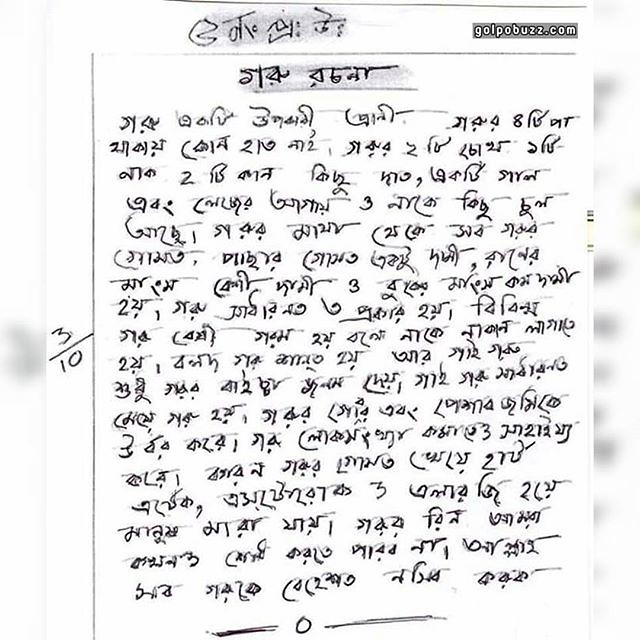 golpobuzz.com
৫ নং প্রঃ উঃ
গরু রচনা
গরু একটি উপকারী প্রানী গরুর ৪টি পা
থাকায় কোন হাত নাই, গরুর ২ টি চোখ ১টি
নাক ২ টি কান কিছু দাত, একটি গাল
এবং লেজের আগায় ও নাকে কিছু চুল
আছে। গরুর মাথা থেকে সব গরুর
গোসত, পাছার গোসত একটু দামী, রানের
মাংস বেশী দামী ও বুকের মাংস কম দামী
হয়, গরু সার্ধারনত ৩ প্রকার হয়, বিবিন্ন
গরু বেশী গরম হয় বলে নাকে নাকাল লাগাতে
হয়। বলদ গরু শান্ত হয় আর গাই গরু
শুধু গরুর বাইচ্চা জনম দেয়, গাই গরু সার্ধারনত
৩/১০
মেয়ে গরু হয়, গরুর গোবর এবং পেশাব জমিকে
উর্বর করে। গরু লোকসংখ্যা কমাতেও সাহাইয্য
করে। কারন গরুর গোসত খেয়ে হার্ট
এর্টেক, এসটোরোক ও এলারজি হয়ে
মানুষ মারা যায়। গরুর রিন আমরা
কখনও শোধ করতে পারব না, আল্লাহ
সব গরুকে বেহেশত নসিব করুক
০